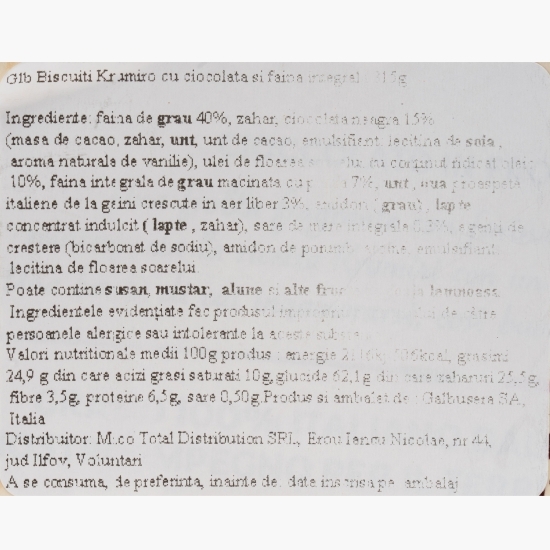 Glb Biscuiti Krumiro cu ciocolata si faina integrala 315g
Ingrediente: faina de grau 40%, zahar, ciocolata neagra 15%
(masa de cacao, zahar, unt, unt de cacao, emulsifient: lecitina de soia,
aroma naturala de vanilie), ulei de floarea soarelui cu continut ridicat oleic
10%, faina integrala de grau macinata cu 7%, unt, oua proaspete
italiene de la gaini crescute in aer liber 3%, amidon (grau), lapte
concentrat indulcit (lapte, zahar), sare de mare integrala 0.3%, agenti de
crestere (bicarbonat de sodiu), amidon de porumb, emulsifient
lecitina de floarea soarelui.
Poate contine susan, mustar, alune si alte fructe lemnoasa
Ingredientele evidențiate fac produsul impropriu de către
persoanele alergice sau intolerante la aceste
Valori nutritionale medii 100g produs: energie 506kcal, grasimi
24,9 g din care acizi grasi saturati 10g, glucide 62,1g din care zaharuri 25,5g,
fibre 3,5g, proteine 6,5g, sare 0,50g. Produs si ambalat de: Galbusera SA,
Italia
Distribuitor: Mico Total Distribution SRL, Erou Iancu Nicolae, nr 44,
jud Ilfov, Voluntari
A se consuma, de preferinta, inainte de: data inscrisa pe ambalaj